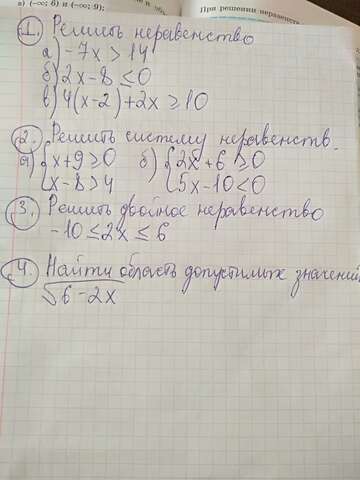 а) (-∞; 6) и (-∞; 9);
При решении неравенств
1. Решить неравенство
а) -7x > 14
б) 2x - 8 ≤ 0
в) 4(x-2) + 2x ≥ 10
2. Решить систему неравенств.
а) { x + 9 ≥ 0 б) { 2x + 6 ≥ 0
x - 8 > 4 5x - 10 < 0
3. Решить двойное неравенство
-10 ≤ 2x ≤ 6
4. Найти область допустимых значений
√6 - 2x